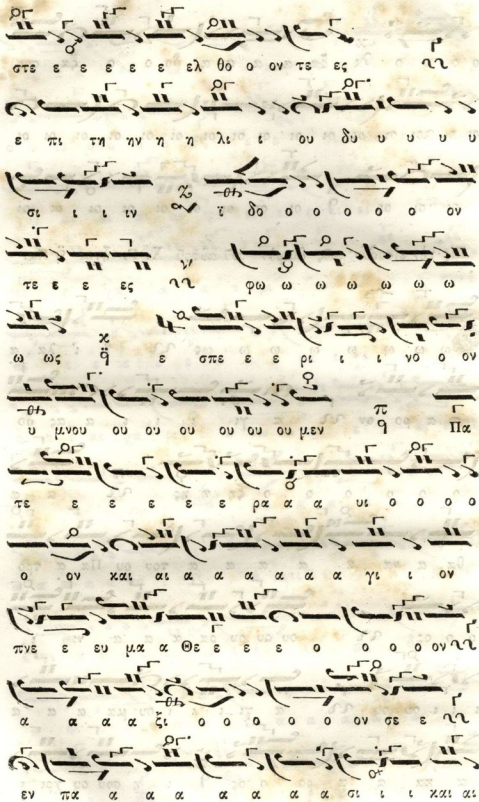 στε ε ε ε ε ε ελ θο ο ον τε ες
ε πι τη ην η η λι ι ου δυ υ υ υ υ
σι ι ι ιν ι δο ο ο ο ο ο ο ον
τε ε ε ες φω ω ω ω ω ω ω
ω ως ε σπε ε ε ρι ι ι νο ο ον
υ μνου ου ου ου ου ου ου μεν Πα
τε ε ε ε ε ε ρα α α υι ο ο ο ο
ο ον και αι α α α α α α α γι ι ον
πνε ε ευ μα α Θε ε ε ε ο ο ο ο ον
α α α α ξι ο ο ο ο ο ο ον σε ε
εν πα α α α α α α α σι ι ι και αι